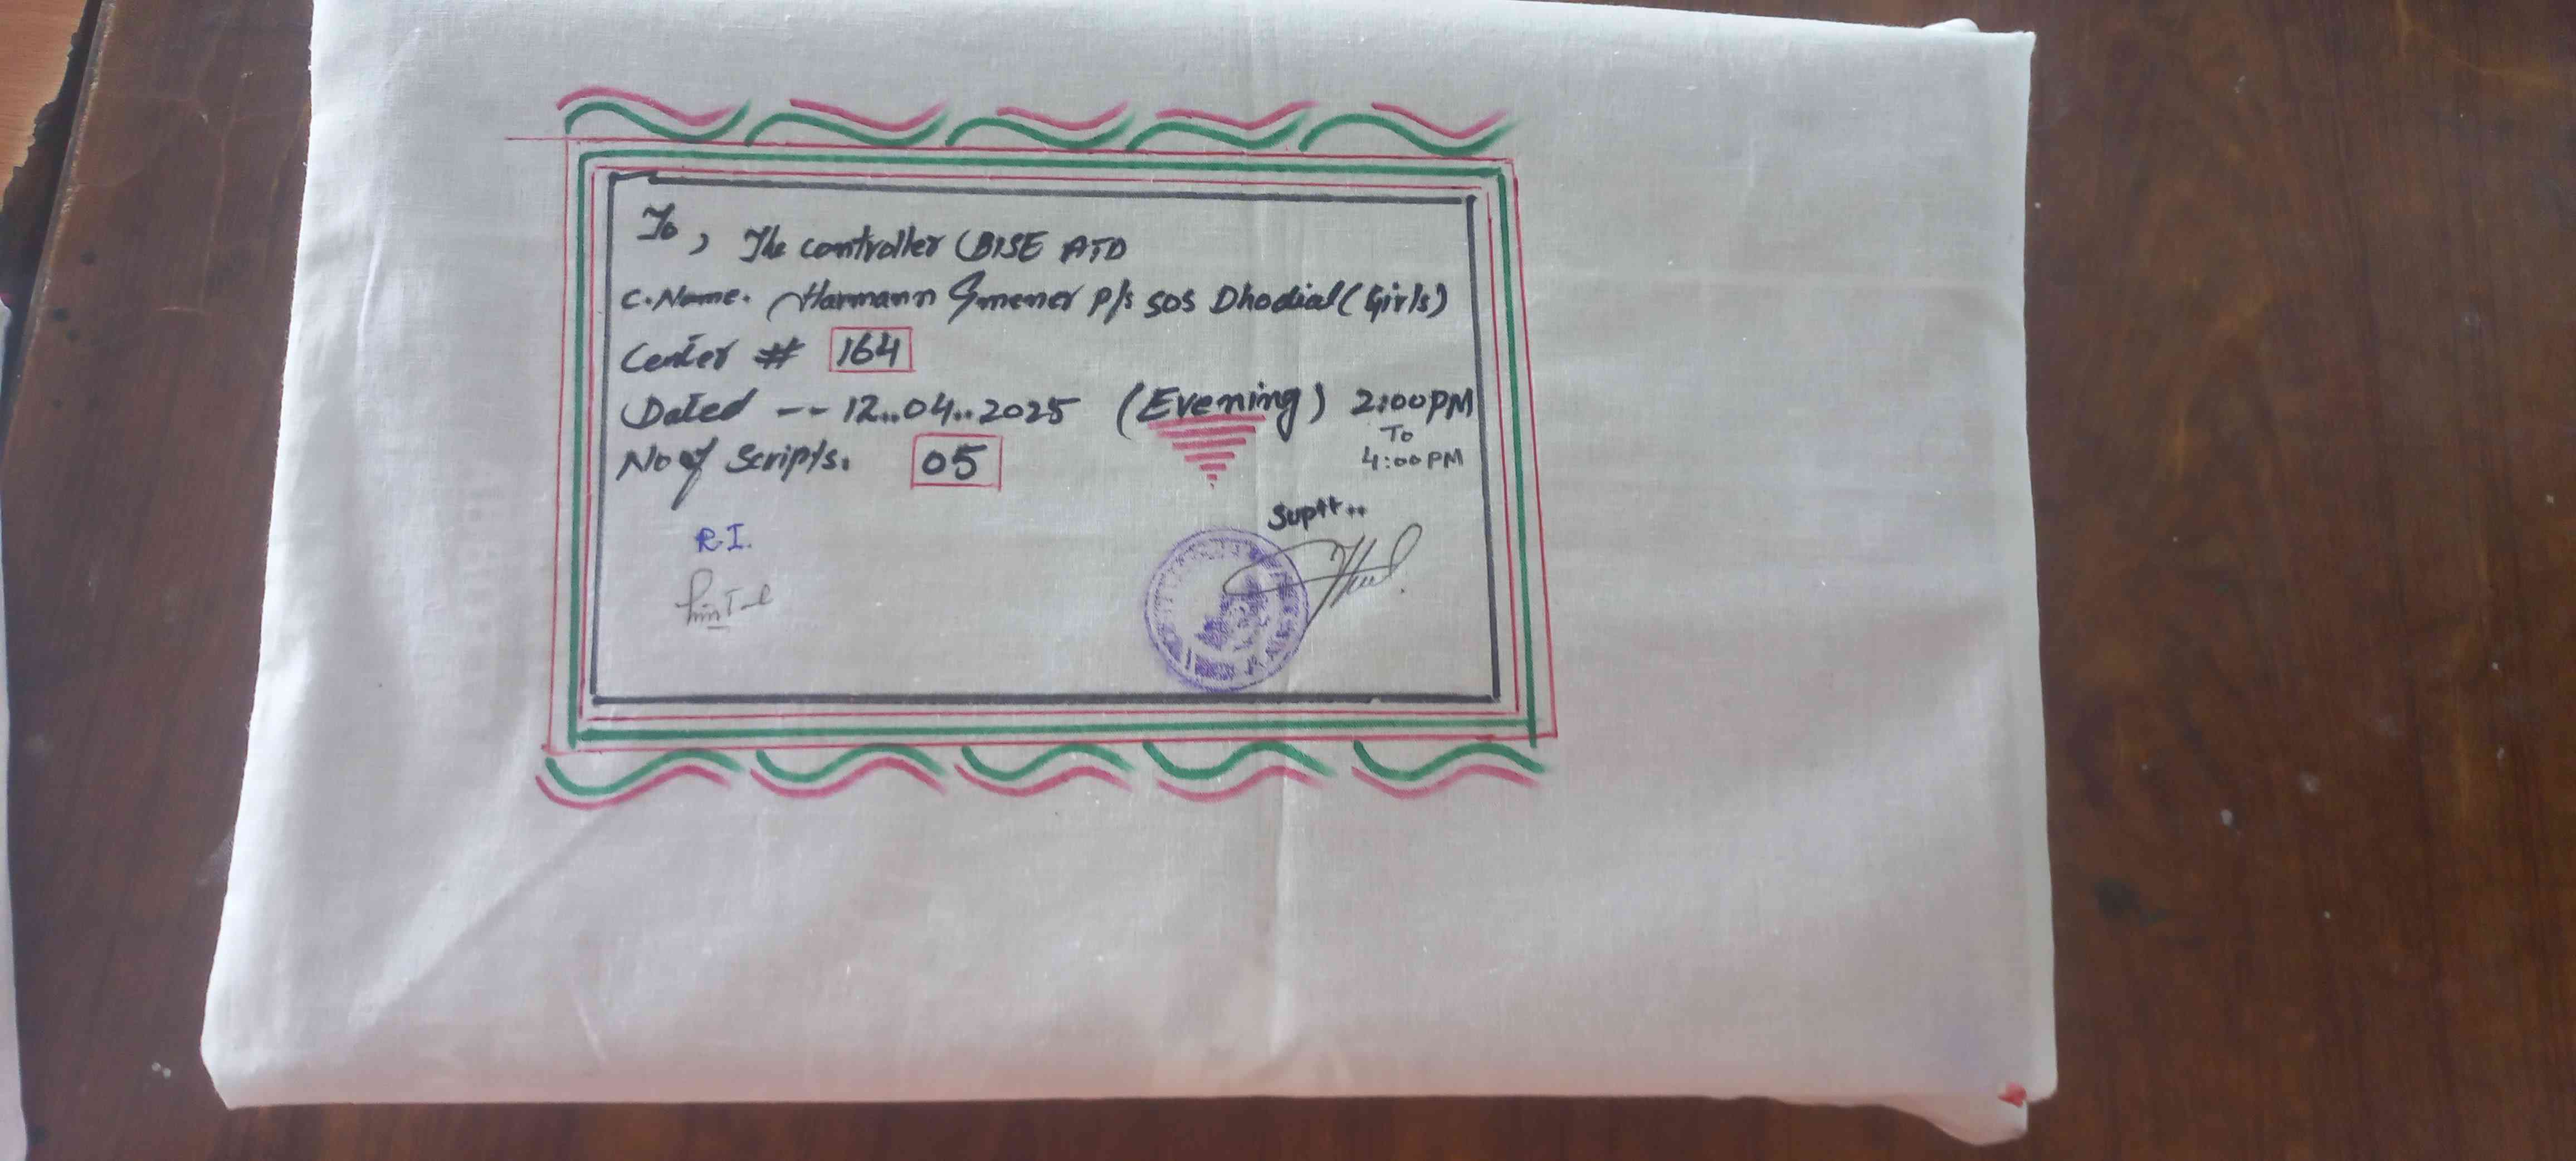 To, The controller BISE ATD
C. Name. Harmann Gmener P/s SOS Dhodial (Girls)
Center # 164
Dated -- 12..04..2025 (Evening) 2:00PM
To
4:00PM
No of Scripts. 05
Suptt..
R.I.